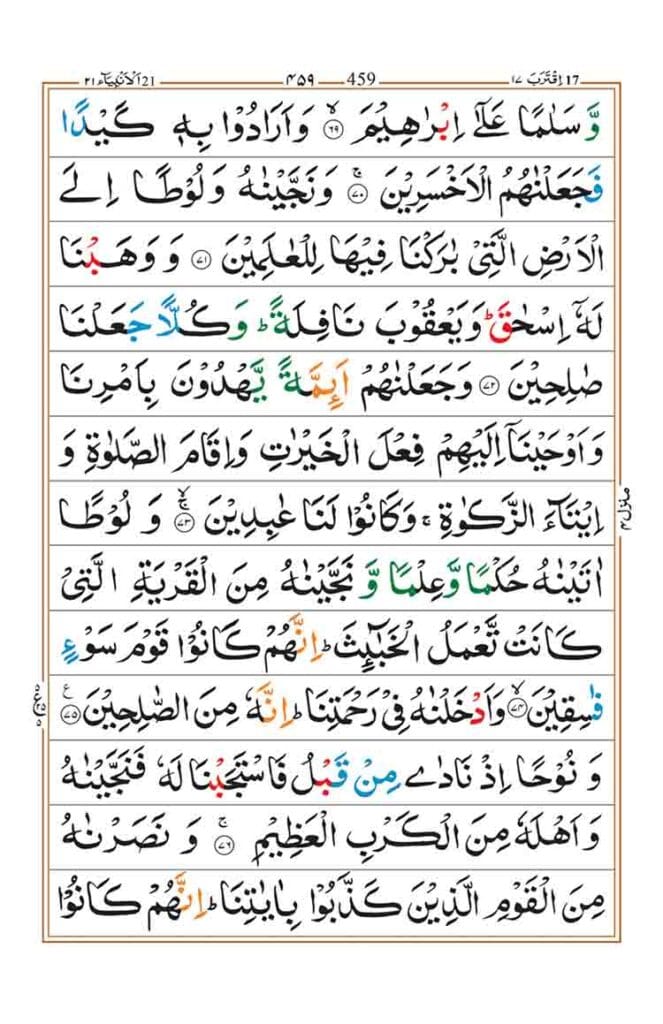 اقْتَرَبَ ١٧ 17 459 ۴۵۹ اَلْاَنْۢبِيَآء ٢١ 21
وَّ سَلٰمًا عَلٰٓى اِبْرٰهِيْمَ ۙ‏﴿۶۹﴾ وَ اَرَادُوْا بِهٖ كَيْدًا
فَجَعَلْنٰهُمُ الْاَخْسَرِيْنَ ۚ‏﴿۷۰﴾ وَ نَجَّيْنٰهُ وَ لُوْطًا اِلَى
الْاَرْضِ الَّتِىْ بٰرَكْنَا فِيْهَا لِلْعٰلَمِيْنَ ﴿۷۱﴾ وَ وَهَبْنَا
لَهٗۤ اِسْحٰقَ ؕ وَ يَعْقُوْبَ نَافِلَةً ؕ وَ كُلًّا جَعَلْنَا
صٰلِحِيْنَ ﴿۷۲﴾ وَ جَعَلْنٰهُمْ اَئِمَّةً يَّهْدُوْنَ بِاَمْرِنَا
وَ اَوْحَيْنَاۤ اِلَيْهِمْ فِعْلَ الْخَيْرٰتِ وَ اِقَامَ الصَّلٰوةِ وَ
اِيْتَآءَ الزَّكٰوةِ ۚ وَ كَانُوْا لَنَا عٰبِدِيْنَ ۙۚ‏﴿۷۳﴾ وَ لُوْطًا
اٰتَيْنٰهُ حُكْمًا وَّ عِلْمًا وَّ نَجَّيْنٰهُ مِنَ الْقَرْيَةِ الَّتِىْ
كَانَتْ تَّعْمَلُ الْخَبٰٓئِثَ ؕ اِنَّهُمْ كَانُوْا قَوْمَ سَوْءٍ
فٰسِقِيْنَ ۙ‏﴿۷۴﴾ وَ اَدْخَلْنٰهُ فِىْ رَحْمَتِنَا ؕ اِنَّهٗ مِنَ الصّٰلِحِيْنَ ﴿۷۵﴾ ع
وَ نُوْحًا اِذْ نَادٰى مِنْ قَبْلُ فَاسْتَجَبْنَا لَهٗ فَنَجَّيْنٰهُ
وَ اَهْلَهٗ مِنَ الْكَرْبِ الْعَظِيْمِ ۚ‏﴿۷۶﴾ وَ نَصَرْنٰهُ
مِنَ الْقَوْمِ الَّذِيْنَ كَذَّبُوْا بِاٰيٰتِنَا ؕ اِنَّهُمْ كَانُوْا
منزل ۴